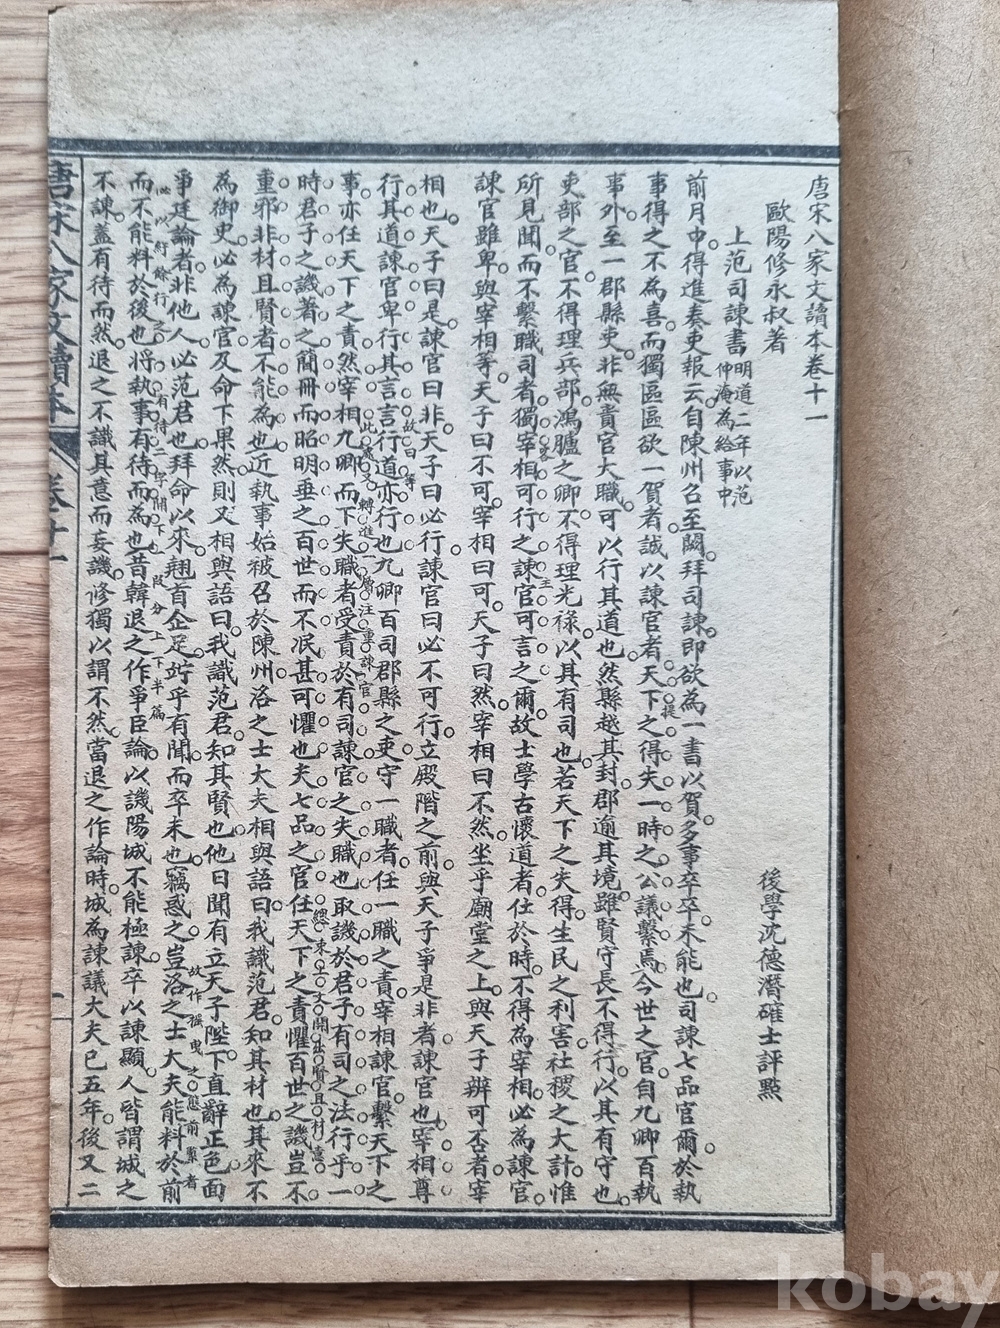 唐宋八家文讀本卷十一
歐陽修永叔著
後學沈德潛確士評點
上范司諫書
明道二年以范
仲淹為給事中
前月中得進奏吏報云自陳州召至闕拜司諫即欲為一書以賀多事卒卒未能也司諫七品官爾於執
事得之不為喜而獨區區欲一賀者誠以諫官者天下之得失一時之公議繫焉今世之官自九卿百執
提
事外至一郡縣吏非無貴官大職可以行其道也然縣越其封郡逾其境雖賢守長不得行以其有守也
吏部之官不得理兵部鴻臚之卿不得理光祿以其有司也若天下之失得生民之利害社稷之大計惟
所見聞而不繫職司者獨宰相可行之諫官可言之爾故士學古懷道者仕於時不得為宰相必為諫官
客
主
諫官雖卑與宰相等天子曰不可宰相曰可天子曰然宰相曰不然坐乎廟堂之上與天子辨可否者宰
相也天子曰是諫官曰非天子曰必行諫官曰必不可行立殿階之前與天子爭是非者諫官也宰相尊
行其道諫官卑行其言言行道亦行也九卿百司郡縣之吏守一職者任一職之責宰相諫官繫天下之
故曰等
事亦任天下之責然宰相九卿而下失職者受責於有司諫官之失職也取譏於君子有司之法行乎一
此處又轉進一層注重諫官
時君子之譏著之簡冊而昭明垂之百世而不泯甚可懼也夫七品之官任天下之責懼百世之譏豈不
重邪非材且賢者不能為也近執事始被召於陳州洛之士大夫相與語曰我識范君知其材也其來不
總束上文開出賢且材意
為御史必為諫官及命下果然則又相與語曰我識范君知其賢也他日聞有立天子陛下直辭正色面
爭廷論者非他人必范君也拜命以來翹首企足竚乎有聞而卒未也竊惑之豈洛之士大夫能料於前
故作搖曳之態前輩者
必以紆餘行之
而不能料於後也將執事有待而為也昔韓退之作爭臣論以譏陽城不能極諫卒以諫顯人皆謂城之
有待二字開下
段分上下半篇
不諫蓋有待而然退之不識其意而妄譏修獨以謂不然當退之作論時城為諫議大夫已五年後又二
唐宋八家文讀本
卷十一
一
kobay